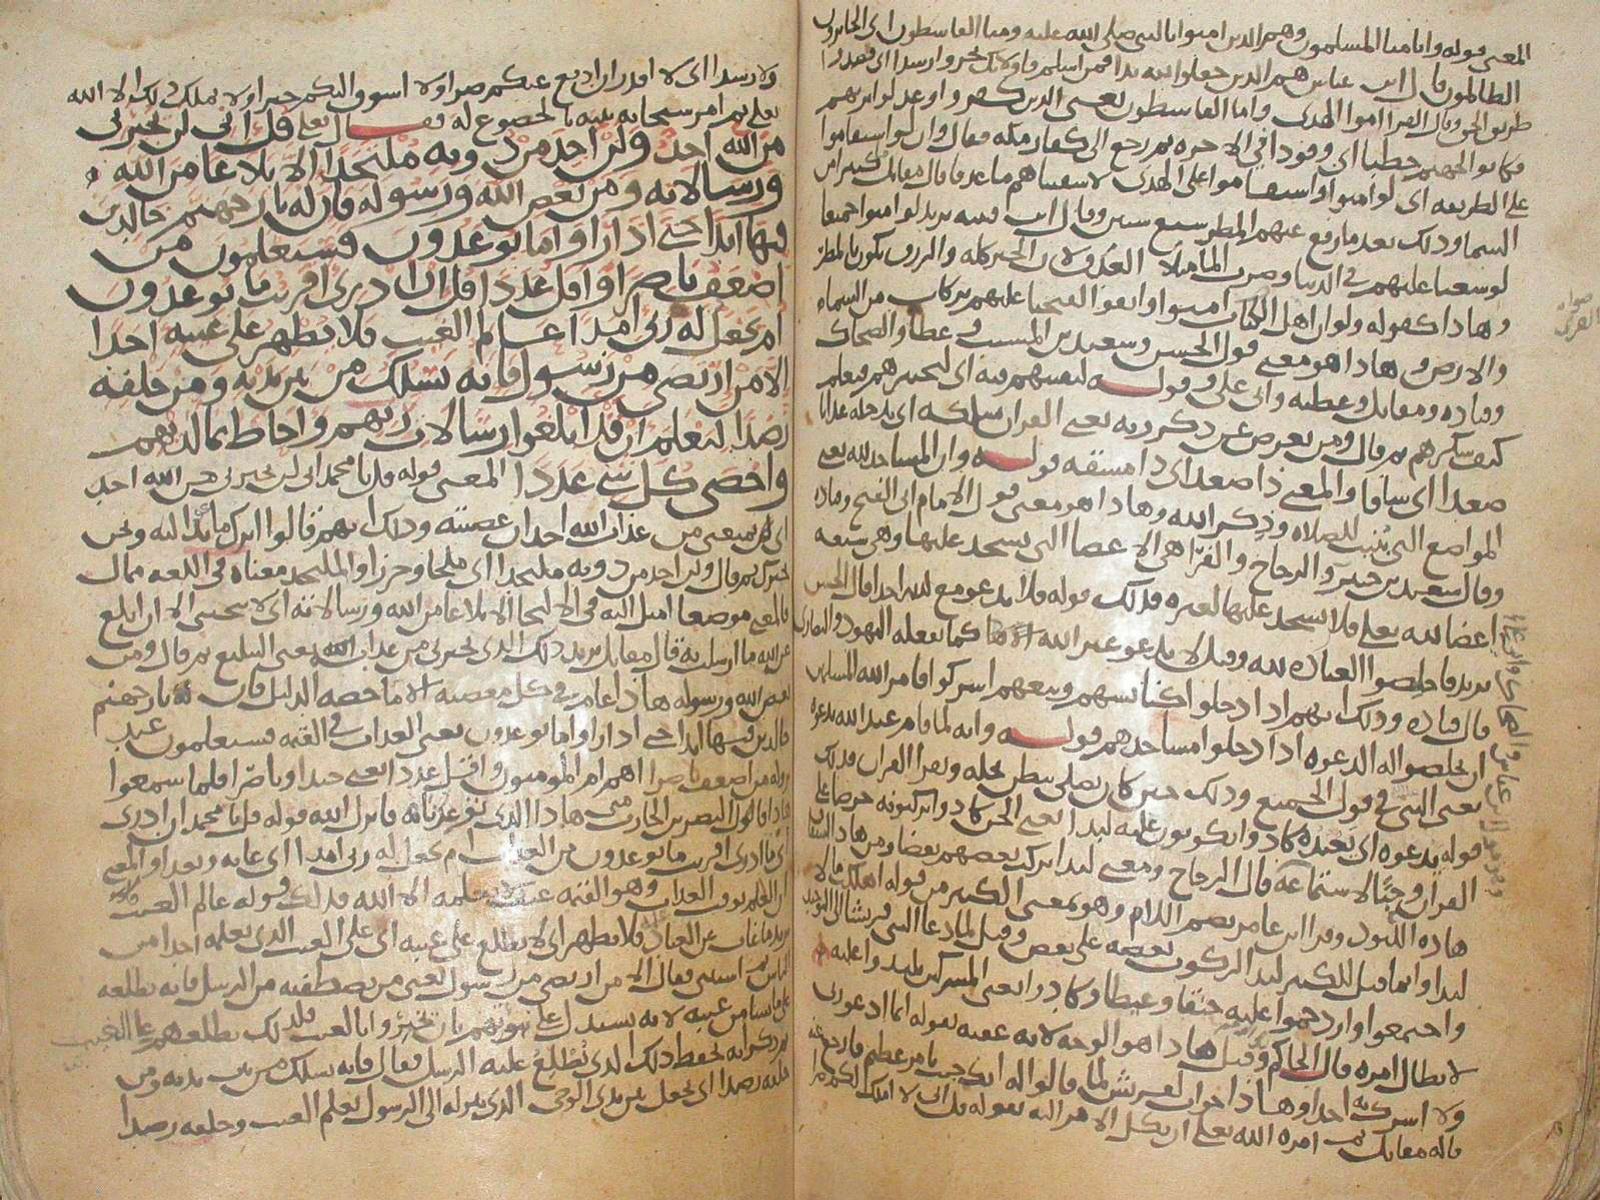 المعنى قوله وانا منا المسلمون وهم الذين امنوا بالنبي صلى الله عليه ومنا القاسطون اي الجايرون
الظالمون قال ابن عباس هم الذين جعلوا لله ندا فمن اسلم فاولئك تحروا رشدا اي قصدوا
طريق الحق وقال الفرا اموا الهدى واما القاسطون يعني الذين كفروا وعدلوا بربهم
فكانوا لجهنم حطبا اي وقودا في الاخره ثم رجع الى كفار مكه فقال وان لو استقاموا
على الطريقه اي لو امنوا واستقاموا على الهدى لاسقيناهم ما غدقا قال مقاتل كثيرا من
السما وذلك بعد ما رفع عنهم المطر سبع سنين وقال ابن قتيبه يريد لو امنوا جميعا
لوسعنا عليهم في الدنيا وضرب الما مثلا الغدق لان الخير كله والرزق يكون بالمطر
وهاذا كقوله ولو ان اهل الكتاب امنوا واتقوا لفتحنا عليهم بركات من السماء
والارض وهاذا هو معنى قول الحسن وسعيد بن المسيب وعطا والضحاك
وقتاده ومقاتل وعطيه وقوله لنفتنهم فيه اي لنختبرهم فنعلم
كيف شكرهم ثم قال ومن يعرض عن ذكر ربه يعني القران نسلكه اي ندخله عذابا
صعدا اي شاقا والمعنى ذا صعد اي ذا مشقه قوله وان المساجد لله يعني
المواضع التي بنيت للصلاه وذكر الله وهاذا هو معنى قول
وقال سعيد بن جبير والزجاج والفرا هي الاعضا التي يسجد عليها وهي سبعه
اعضا لله يعني فلا تسجد عليها لغيره فذلك قوله فلا تدعو مع الله احدا قال الحسن
وقيل لا يدعو غير الله كما تفعله اليهود والنصارى
قال قتاده وذلك انهم اذا دخلوا كنايسهم وبيعهم اشركوا فامر الله المسلمين
ان يخلصوا له الدعوه اذا دخلوا مساجدهم قوله وانه لما قام عبد الله يدعوه
يعني النبي في قول الجميع وذلك حين كان يصلي ببطن نخله ويقرا القران فذلك
قوله يدعوه اي يعبده كادوا يكونون عليه لبدا يعني الجن كادوا يركبونه حرصا على
القران وحبا لاستماعه قال الزجاج ومعنى لبدا يركب بعضهم بعضا ومن هاذا اشتقاق
هاذه اللبود وقرا ابن عامر بضم اللام وهو بمعنى الكثير من قوله اهلكت مالا
لبدا وانما قيل للكثير لبدا لركوب بعضه على بعض وقيل لما دعا النبي قريشا الى التوحيد
واجتمعوا وازدحموا عليه حنقا وغيظا وكادوا يعني المشركين
لابطال امره قال الحاكم وقيل هاذا هو الوجه لانه عقبه بقوله انما ادعو ربي
ولا اشرك به احدا وهاذا جواب لقريش لما قالوا له انك جيت بامر عظيم فارجع عنه
قاله مقاتل ثم امره الله تعالى ان يكل الامر اليه بقوله قل اني لا املك لكم ضرا
صوابه
القرى
ولا رشدا اي لا اقدر ان ادفع عنكم ضرا ولا اسوق اليكم خيرا ولا يملك ذلك الا الله
تعلى ثم امر سبحانه نبيه بالخضوع له فقال تعلى قل اني لن يجيرني
من الله احد ولن اجد من دونه ملتحدا الا بلاغا من الله
ورسالاته ومن يعص الله ورسوله فان له نار جهنم خالدين
فيها ابدا حتى اذا راوا ما يوعدون فسيعلمون من
اضعف ناصرا واقل عددا قل ان ادري اقريب ما توعدون
ام يجعل له ربي امدا عالم الغيب فلا يظهر على غيبه احدا
الا من ارتضى من رسول فانه يسلك من بين يديه ومن خلفه
رصدا ليعلم ان قد ابلغوا رسالات ربهم واحاط بما لديهم
واحصى كل شي عددا المعنى قوله قل يا محمد اني لن يجيرني من الله احد
اي لن يمنعني من عذاب الله احد ان عصيته وذلك انهم قالوا اترك ما تدعوا اليه ونحن
نجيرك ثم قال ولن اجد من دونه ملتحدا اي ملجا وحرزا والملتحد معناه في اللغه ممال
فالمعنى موضعا اميل اليه في الالتجا الا بلاغا من الله ورسالاته اي لا ينجيني الا ان ابلغ
عن الله ما ارسلت به قال مقاتل يريد ذلك الذي يجيرني من عذاب الله يعني التبليغ ثم قال ومن
يعص الله ورسوله هاذا عام في كل معصيه الا ما خصه الدليل فان له نار جهنم
خالدين فيها ابدا حتى اذا راوا ما يوعدون يعني العذاب في القيمه فسيعلمون عند
نزوله من اضعف ناصرا اهم ام المومنون واقل عددا يعني جندا وناصرا فلما سمعوا
هاذا قال النضر بن الحارث متى هاذا الذي توعدنا به فانزل الله قوله قل يا محمد ان ادري
اي ما ادري اقريب ما توعدون من العذاب ام يجعل له ربي امدا اي غايه وبعدا والمعنى
ان العلم بوقت العذاب وهو القيمه غيب لا يعلمه الا الله فذلك قوله عالم الغيب
يريد ما غاب عن العباد فلا يظهر اي لا يطلع على غيبه اي على الغيب الذي يعلمه احدا من
الناس ثم استثنى فقال الا من ارتضى من رسول يعني من يصطفيه من الرسل فانه يطلعه
على ما شا من غيبه لانه يستدل على نبوتهم بان يخبروا بالغيب فلذلك يطلعهم على الغيب
ثم ذكر انه يحفظ ذلك الذي تطلع عليه الرسل فقال فانه يسلك من بين يديه ومن
خلفه رصدا اي يجعل بين يدي الوحي الذي ينزله الى الرسول بعلم الغيب وخلفه رصدا